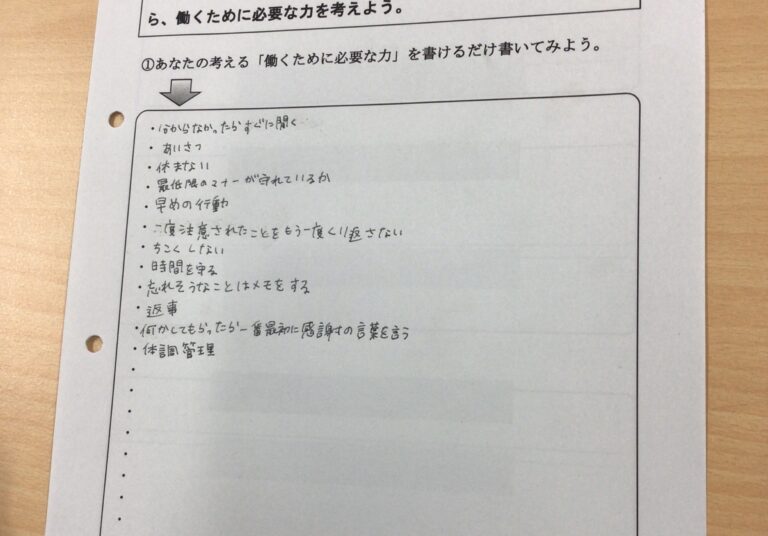 ら、働くために必要な力を考えよう。
①あなたの考える「働くために必要な力」を書けるだけ書いてみよう。
・わからなかったらすぐに聞く
・あいさつ
・休まない
・最低限のマナーが守れているか
・早めの行動
・二度注意されたことをもう一度くり返さない
・ちこくしない
・時間を守る
・忘れそうなことはメモをする
・返事
・何かしてもらったら一番最初に感謝の言葉を言う
・体調管理
・
・
・
・
・
・
・
・